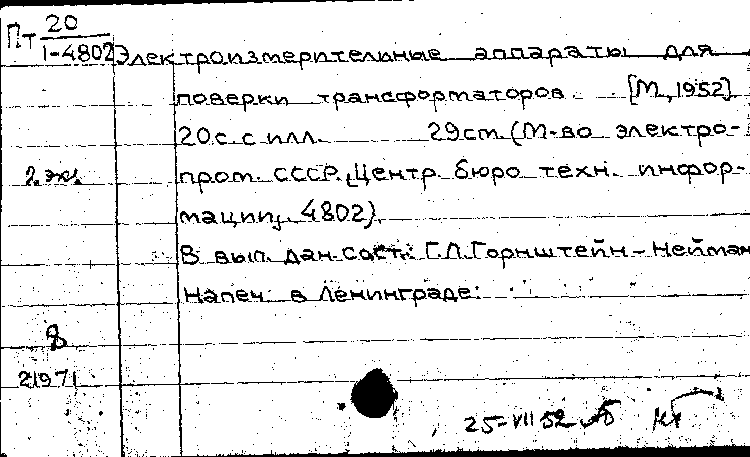 Пт 20
1-4802 Электроизмерительные аппараты для
поверки трансформаторов. [М., 1952]
20с. с илл. 29см. (М-во электро-
2 экз. пром. СССР. Центр. бюро техн. инфор-
мации, 4802).
В вып. дан. сост.: Г.Л. Горнштейн-Нейман
Напеч. в Ленинграде.
8
21971
25-VII 52